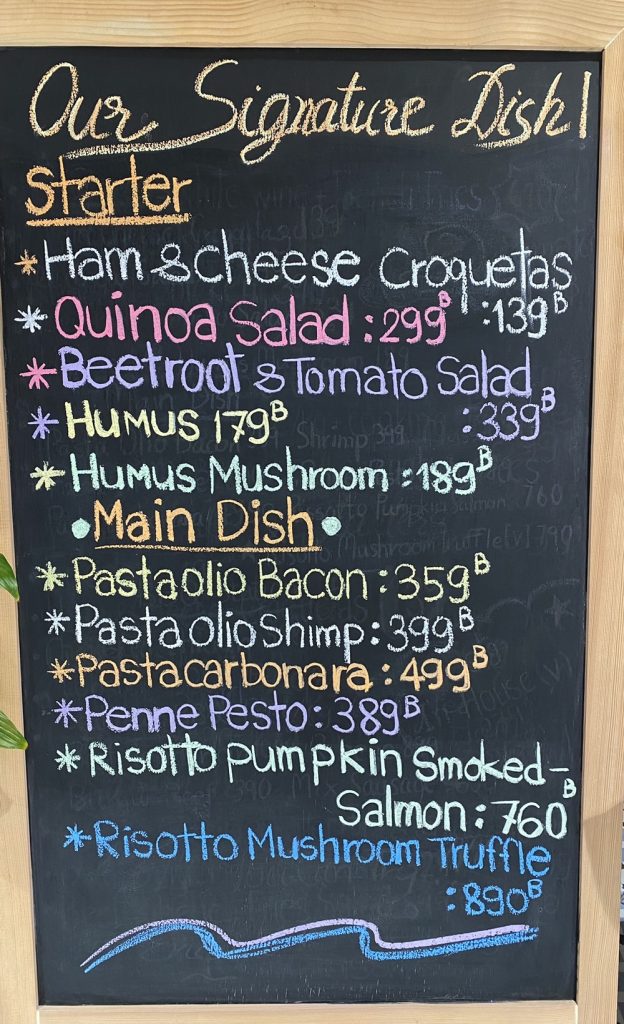 Our Signature Dish!
Starter
* Ham & cheese Croquetas
* Quinoa Salad : 299B :139B
* Beetroot & Tomato Salad
* Humus 179B :339B
* Humus Mushroom :189B
• Main Dish •
* Pasta olio Bacon : 359B
* Pasta olio Shimp : 399B
* Pasta carbonara : 499B
* Penne Pesto : 389B
* Risotto Pumpkin Smoked-
Salmon : 760B
* Risotto Mushroom Truffle
:890B